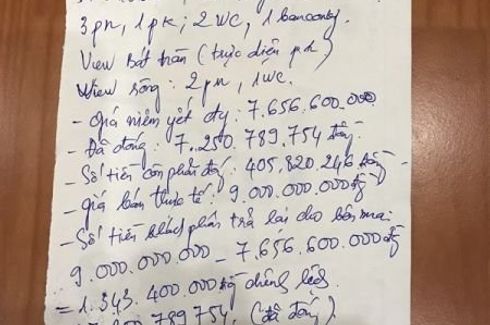 3pn, 1pk; 2wc, 1 bancong.
View Bát tràn (trực diện pk)
View sông: 2pn, 1wc.
- giá niêm yết đy: 7.656.600.000
- Đã đóng: 7.250.789.754 đồng.
- Số tiền còn phải đóng: 405.820.246 đồng
- giá bán thực tế: 9.000.000.000 đ
- Số tiền khách phải trả lại cho bên mai:
9.000.000.000 - 7.656.600.000 đ
= 1.343.400.000 đ chênh lệch
789.754, (đã đóng)